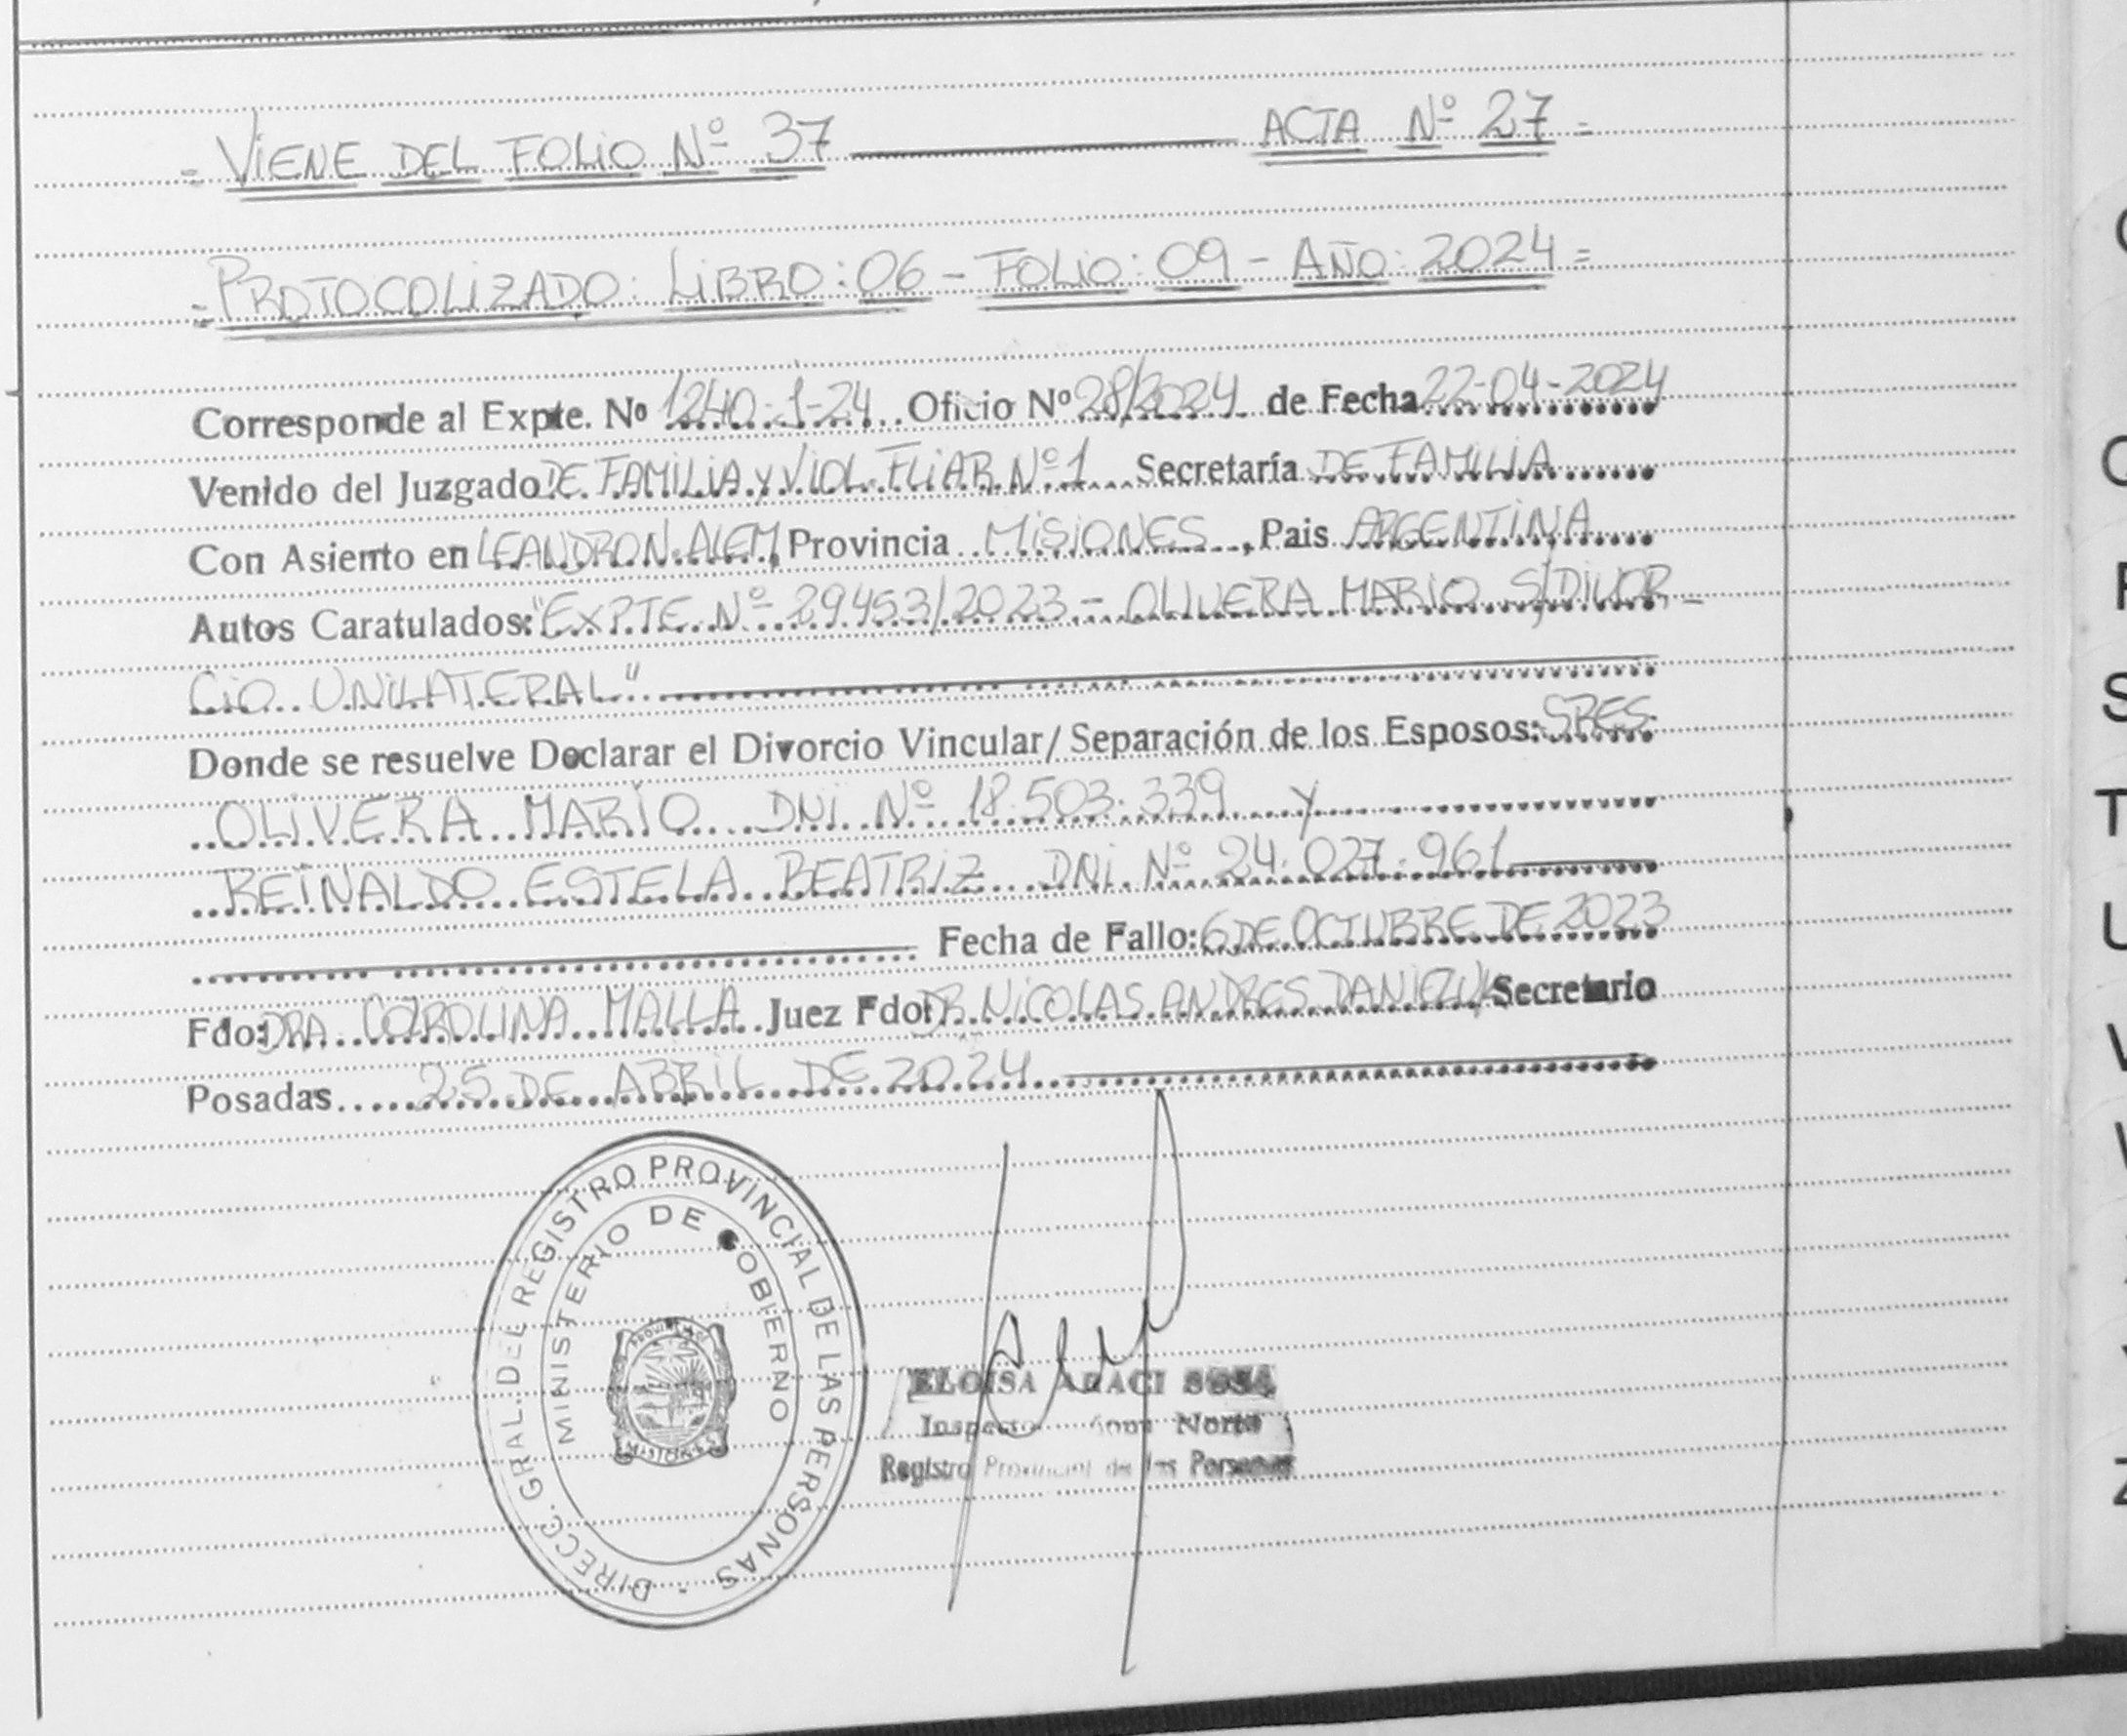 = VIENE DEL FOLIO Nº 37 ACTA Nº 27 =
= PROTOCOLIZADO: LIBRO: 06 - FOLIO: 09 - AÑO: 2024 =
Corresponde al Expte. Nº 1240-J-24 Oficio Nº 28/2024 de Fecha 22-04-2024
Venido del Juzgado DE FAMILIA Y VIOL. FLIAR. Nº 1 Secretaría DE FAMILIA
Con Asiento en LEANDRO N. ALEM, Provincia MISIONES, Pais ARGENTINA
Autos Caratulados: "EXPTE Nº 29453/2023 - OLIVERA MARIO S/DIVOR-
CIO UNILATERAL"
Donde se resuelve Declarar el Divorcio Vincular/Separación de los Esposos: SRES.
OLIVERA MARIO DNI Nº 18.503.339 Y
REINALDO ESTELA BEATRIZ DNI Nº 24.027.961
Fecha de Fallo: 6 DE OCTUBRE DE 2023
Fdo: DRA COROLINA MALLA Juez Fdo: DR. NICOLAS ANDRES Secretario
Posadas 25 DE ABRIL DE 2024
DIRECC. GRAL. DEL REGISTRO PROVINCIAL DE LAS PERSONAS -
MINISTERIO DE GOBIERNO
PROVINCIA DE
MISIONES
ELOISA ARACI SOSA
Norte
Registro Provincial de las Personas
C
C
F
S
T
U
V
Z